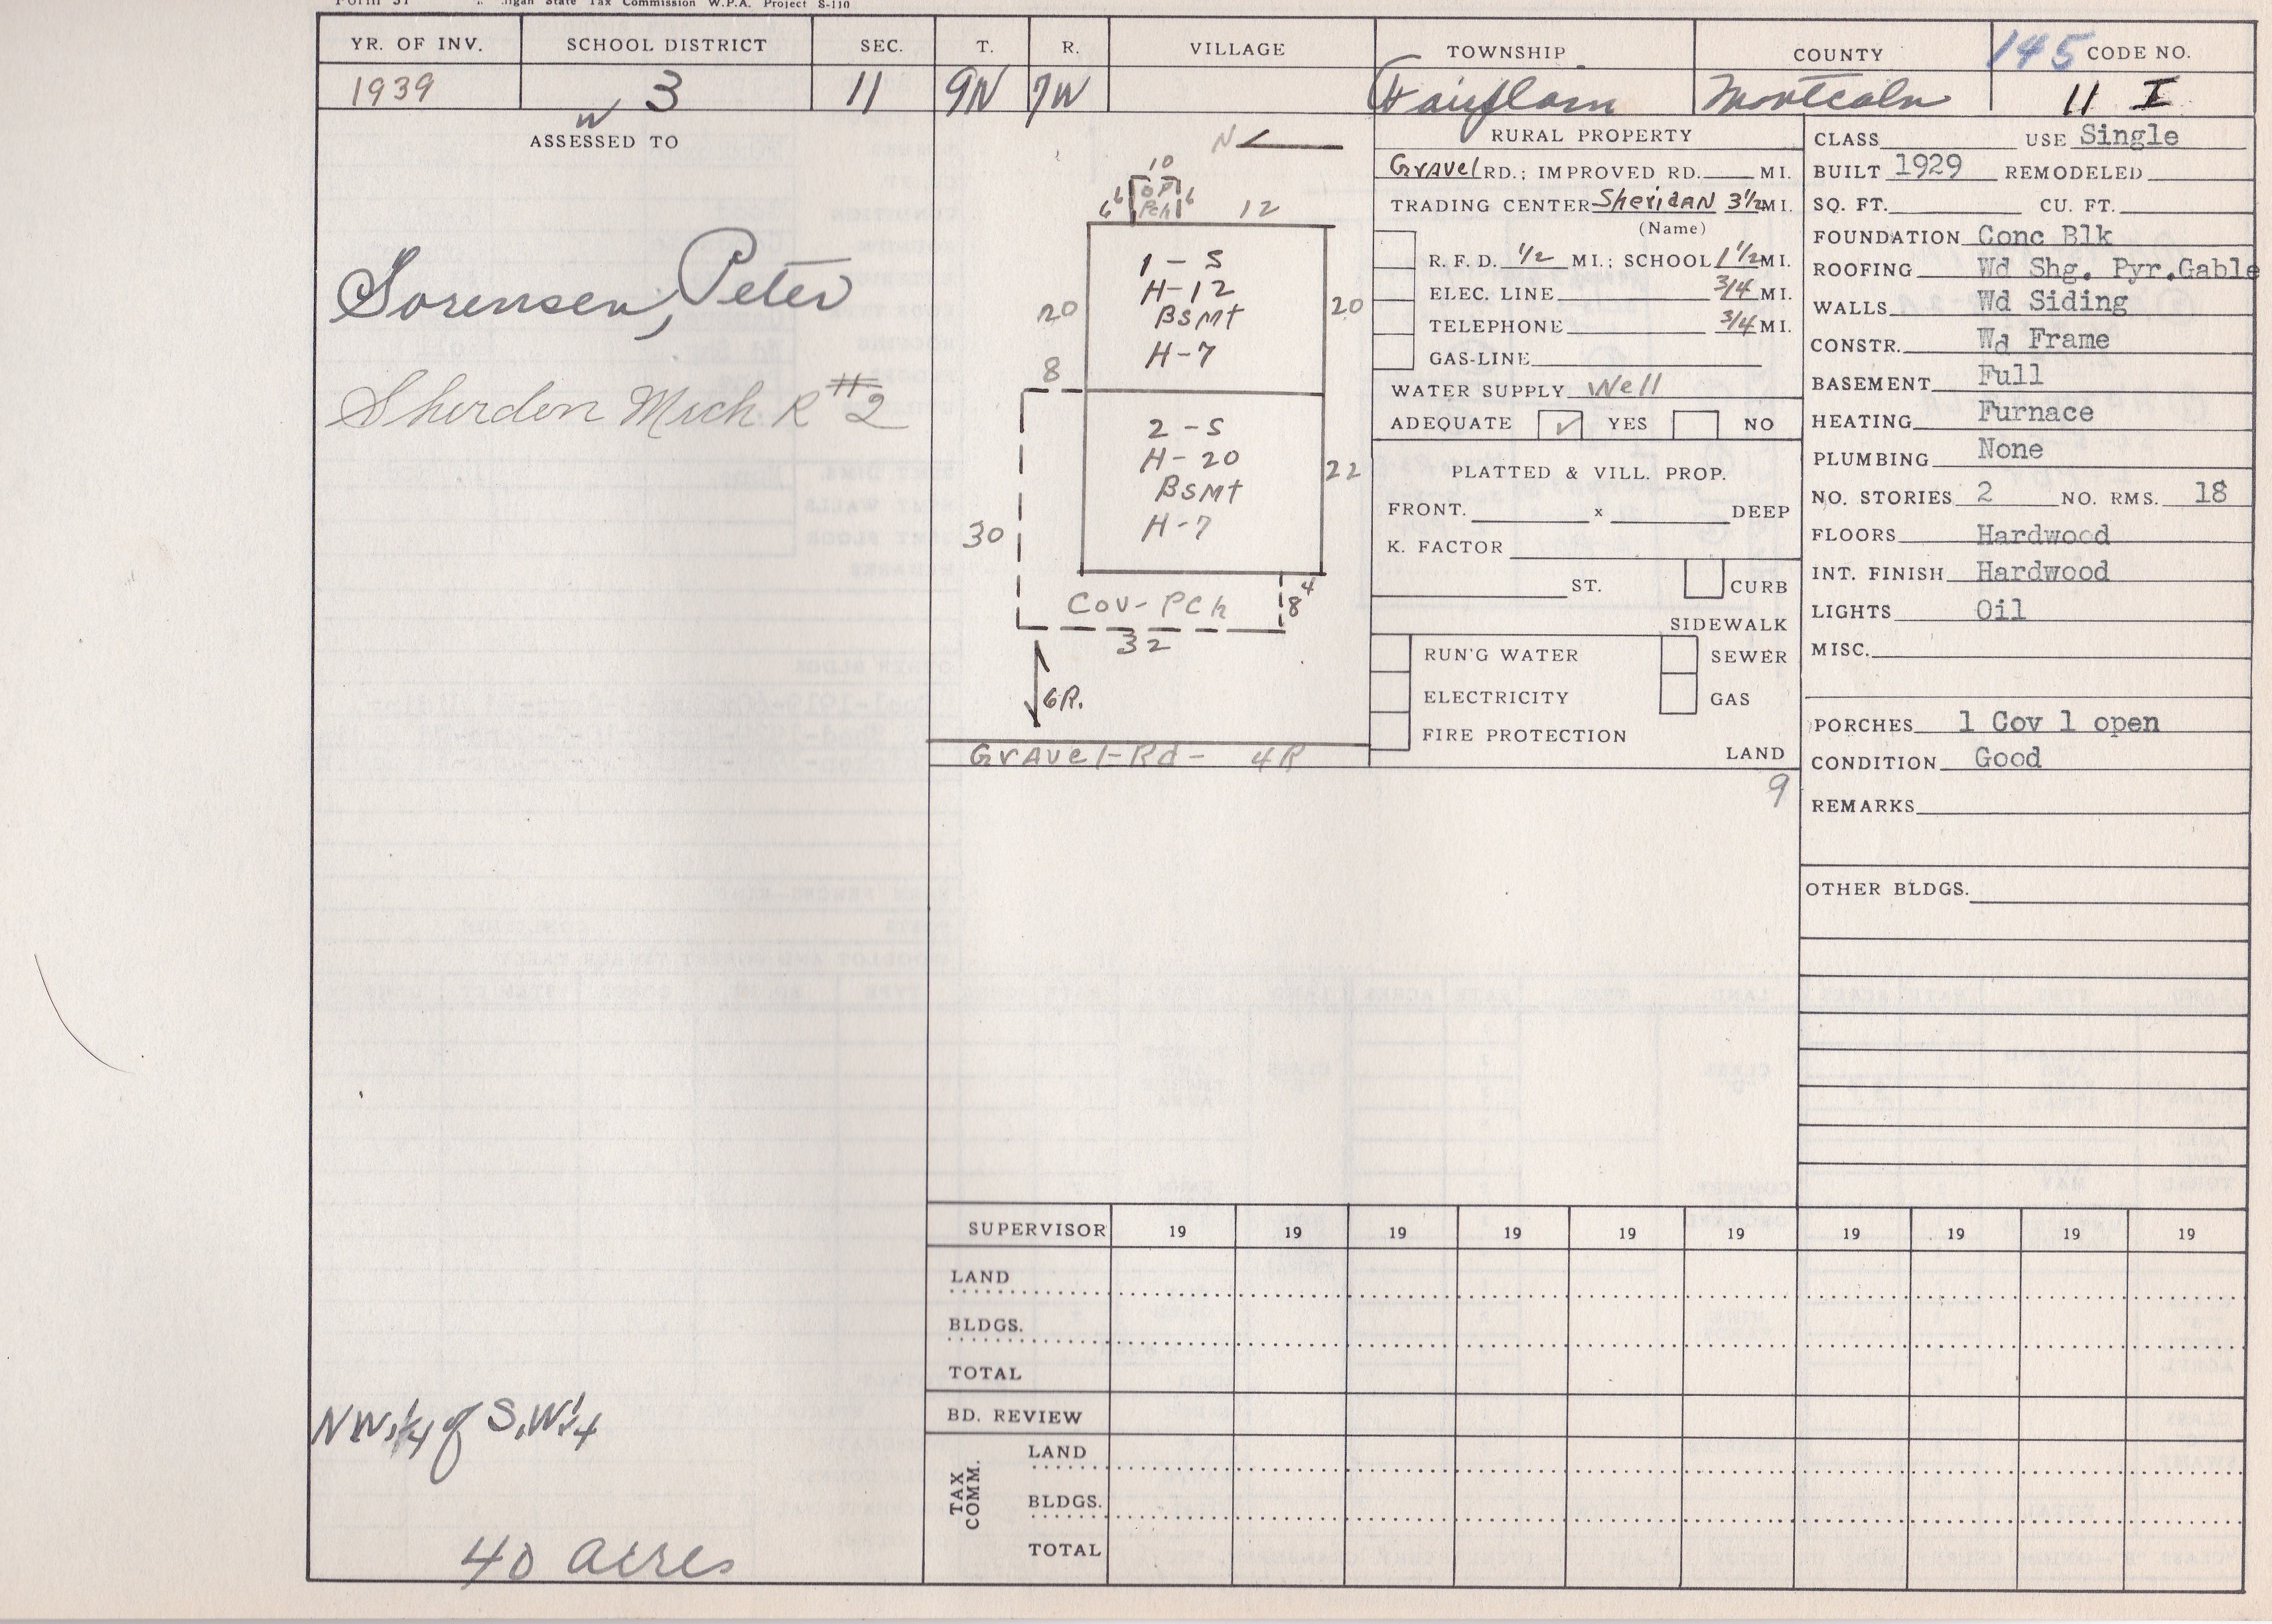 Form 31 State Tax Commission W.P.A. Project S-110
YR. OF INV. SCHOOL DISTRICT SEC. T. R. VILLAGE TOWNSHIP COUNTY 145 CODE NO.
1939 3 11 9N 7W Fairplain Montcalm 11 I
W
ASSESSED TO
Sorensen, Peter
Sherden Mich R #2
NW,1/4 of S,W1/4
40 acres
N
10
6 6 OP 6
Pch
12
1 - S
H-12
BSMt
H-7
20 20
8
2 - S
H-20
BSMt
H-7
22
30
Cov-PCh 8 4
32
6R.
Gravel-Rd- 4R
RURAL PROPERTY
Gravel RD.; IMPROVED RD. MI.
TRADING CENTER Sheridan 3 1/2 MI.
(Name)
R. F. D. 1/2 MI.; SCHOOL 1 1/2 MI.
ELEC. LINE 3/4 MI.
TELEPHONE 3/4 MI.
GAS-LINE
WATER SUPPLY Well
ADEQUATE ✓ YES NO
PLATTED & VILL. PROP.
FRONT. x DEEP
K. FACTOR
ST. CURB
SIDEWALK
RUN'G WATER SEWER
ELECTRICITY GAS
FIRE PROTECTION
LAND
9
CLASS USE Single
BUILT 1929 REMODELED
SQ. FT. CU. FT.
FOUNDATION Conc Blk
ROOFING Wd Shg. Pyr.Gable
WALLS Wd Siding
CONSTR. Wd Frame
BASEMENT Full
HEATING Furnace
PLUMBING None
NO. STORIES 2 NO. RMS. 18
FLOORS Hardwood
INT. FINISH Hardwood
LIGHTS Oil
MISC.
PORCHES 1 Cov 1 open
CONDITION Good
REMARKS
OTHER BLDGS.
SUPERVISOR 19 19 19 19 19 19 19 19 19 19
LAND
BLDGS.
TOTAL
BD. REVIEW
TAX COMM.
LAND
BLDGS.
TOTAL